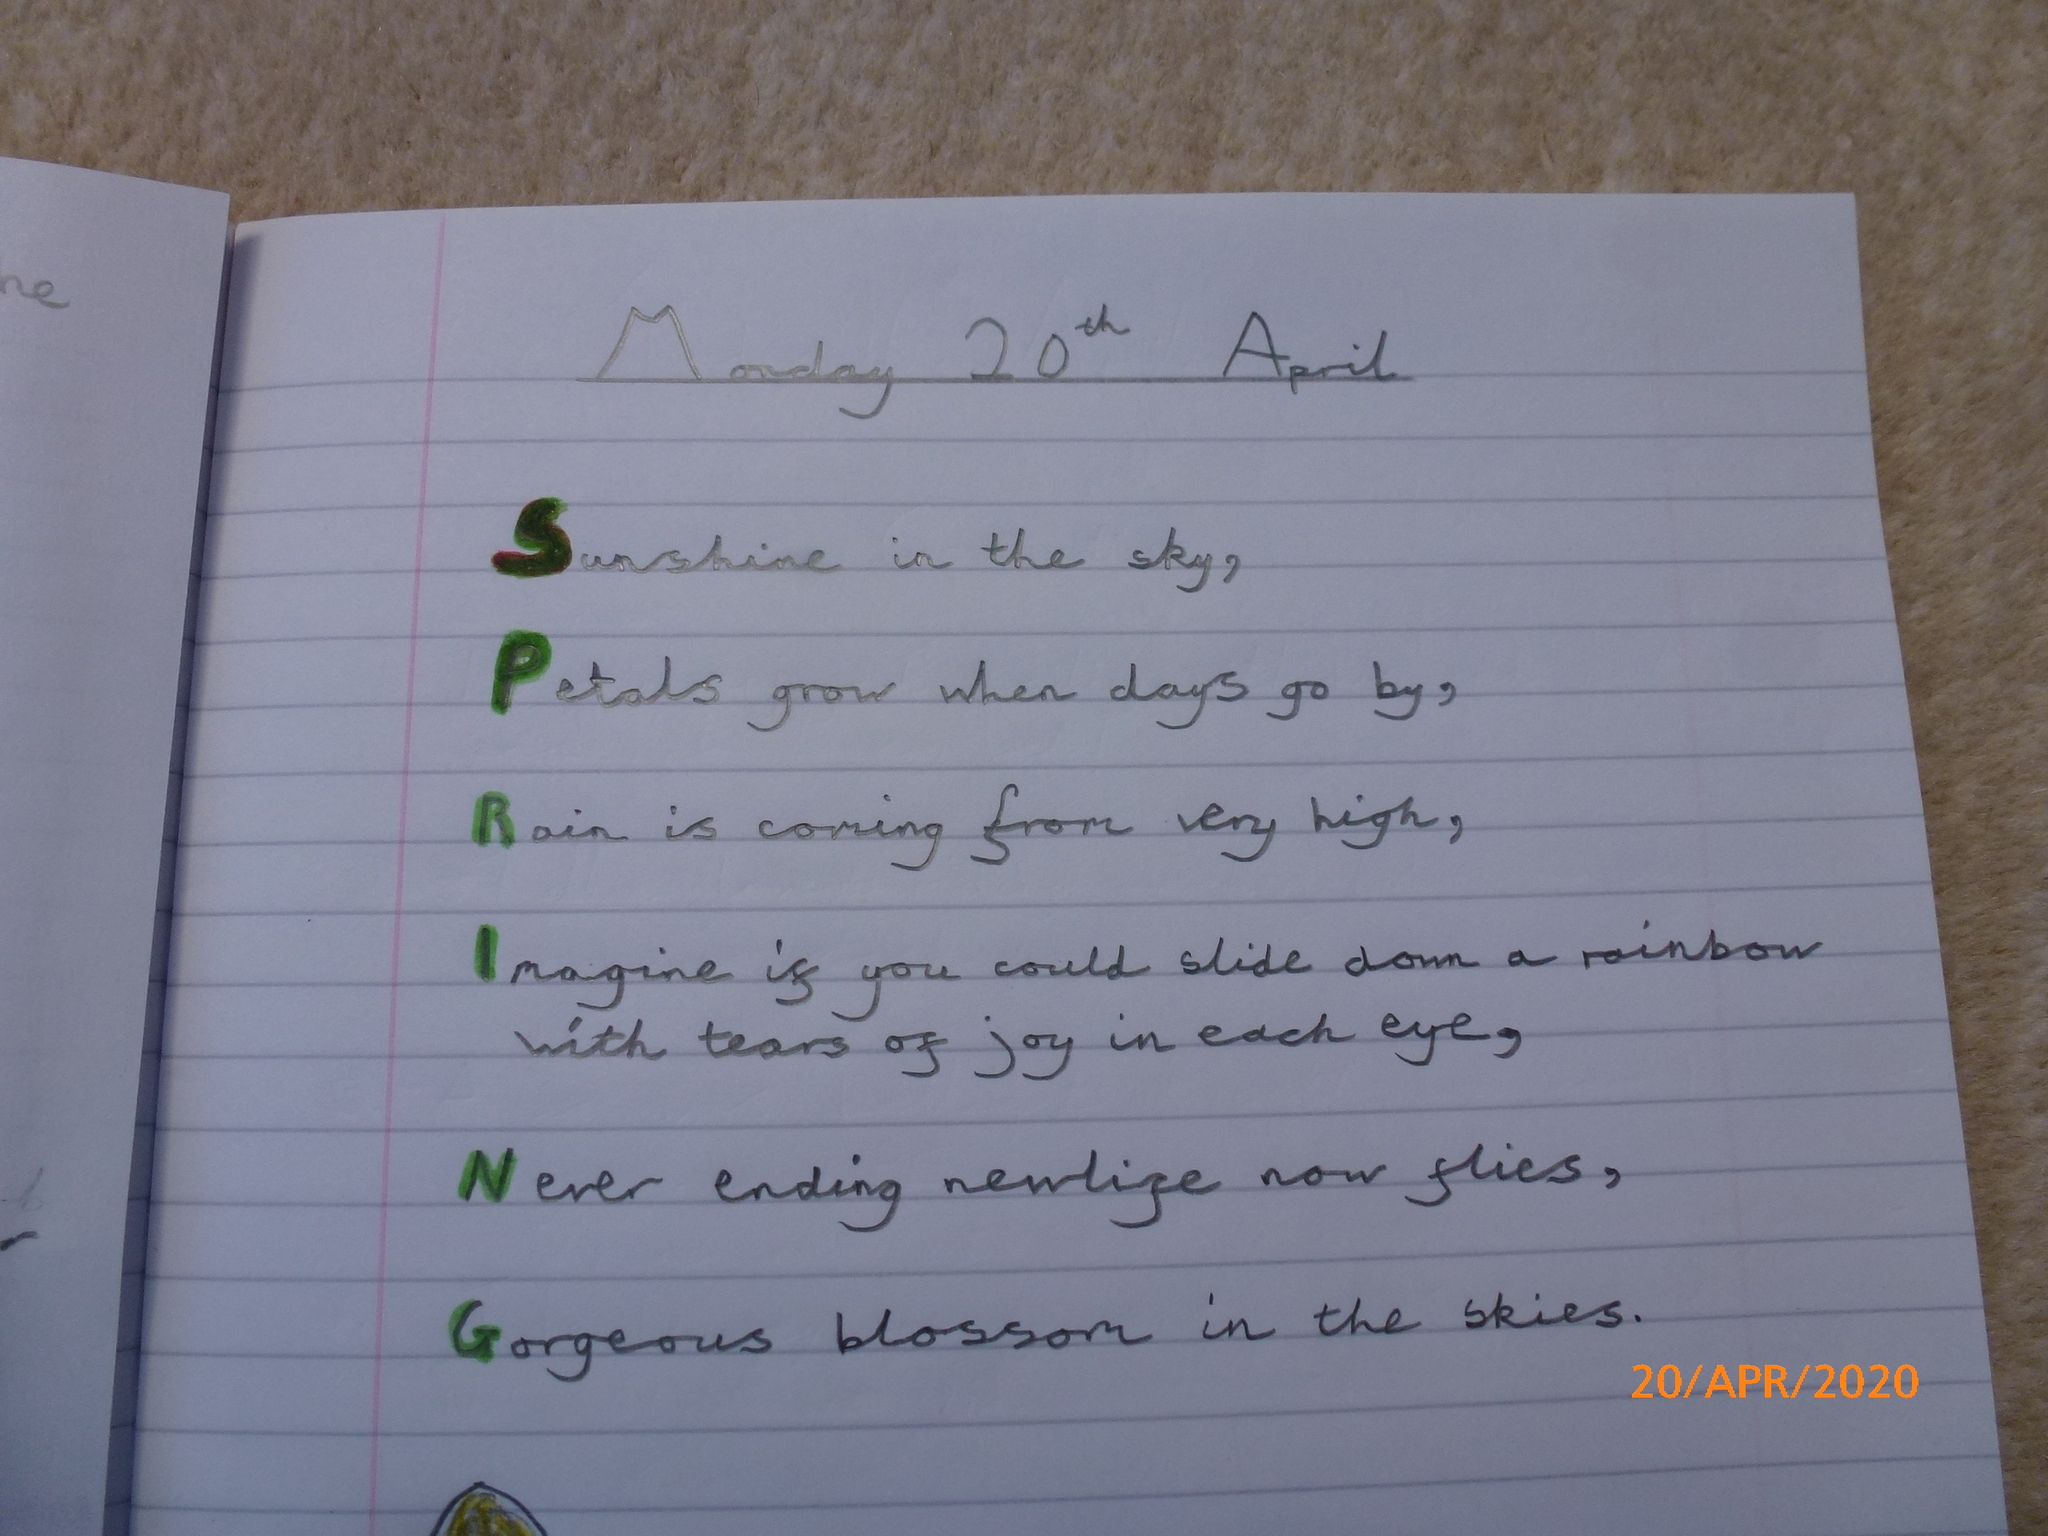 he
Monday 20th April
Sunshine in the sky,
Petals grow when days go by,
Rain is coming from very high,
Imagine if you could slide down a rainbow
with tears of joy in each eye,
Never ending newlife now flies,
Gorgeous blossom in the skies.
20/APR/2020